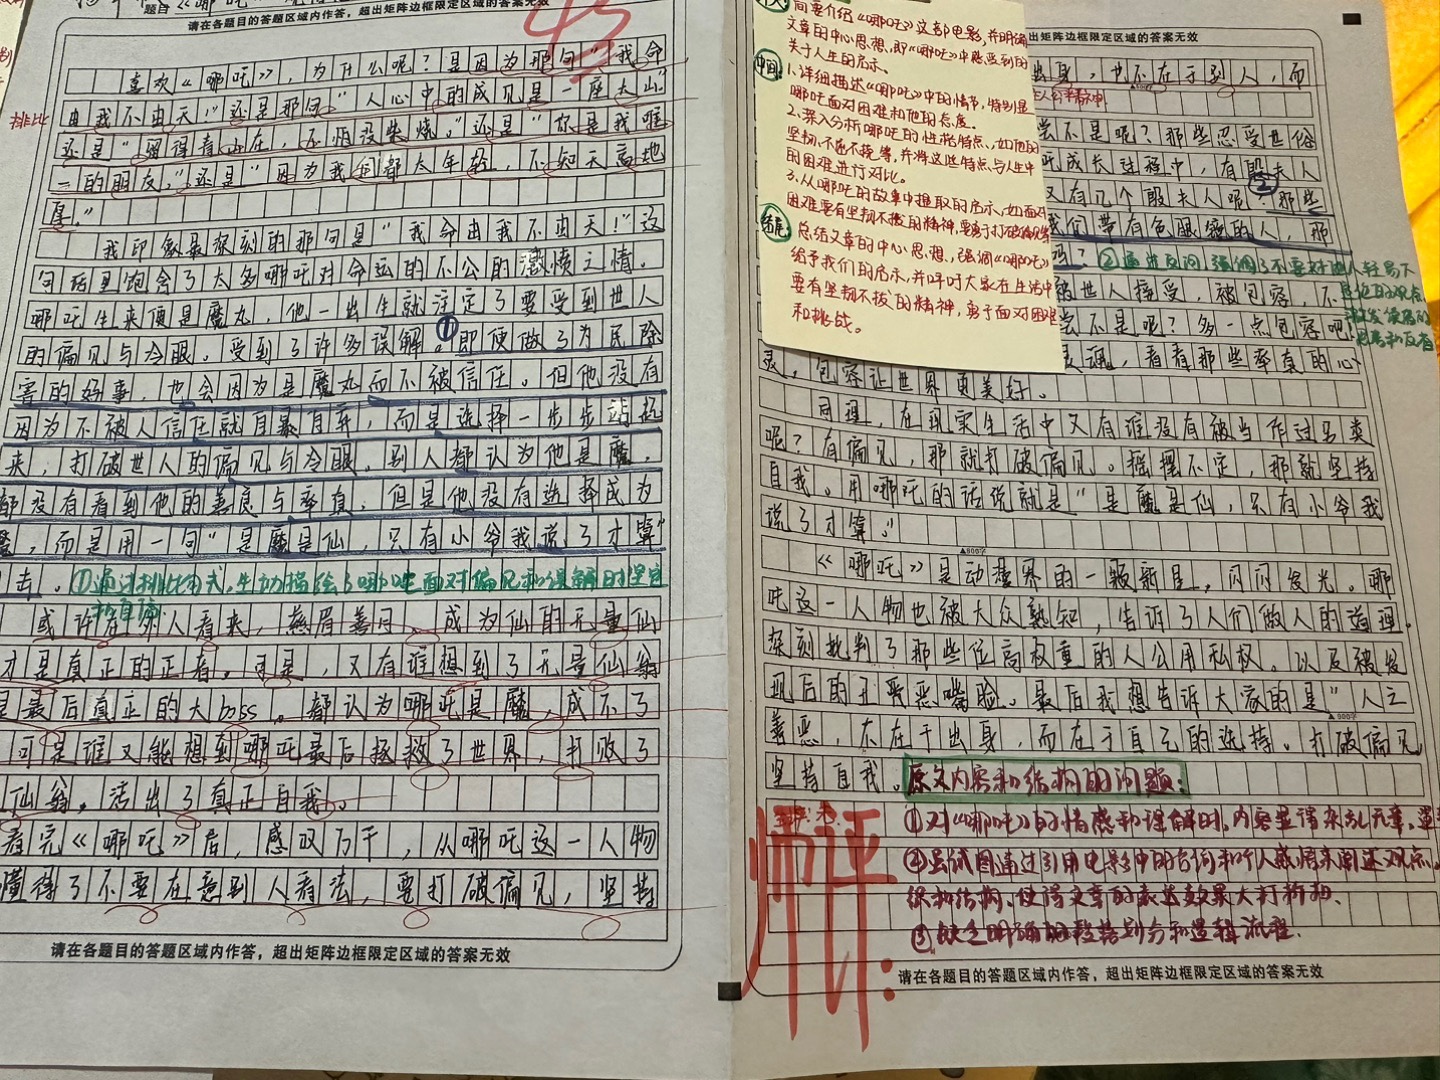 题目《哪吒》
请在各题目的答题区域内作答，超出矩阵边框限定区域的答案无效
喜欢《哪吒》，为什么呢？是因为那句"我命
由我不由天！"还是那句"人心中的成见是一座大山。"
还是"留得青山在，不怕没柴烧。"还是"你是我唯
一的朋友。"还是"因为我们都太年轻，不知天高地
厚。"
排比
我印象最深刻的那句是"我命由我不由天！"这
句话里饱含了太多哪吒对命运的不公的愤之情。
哪吒生来便是魔丸，他一出生就注定了要受到世人
的偏见与冷眼。受到了许多误解。①即使做了为民除
害的好事，也会因为是魔丸而不被信任。但他没有
因为不被人信任就自暴自弃，而是选择一步步站起
来，打破世人的偏见与冷眼。别人都认为他是魔，
都没有看到他的善良与率真，但是他没有选择成为
魔，而是用一句"是魔是仙，只有小爷我说了才算"
击。①通过排比句式，生动描绘了哪吒面对偏见和误解时坚定
或许在别人看来，慈眉善目，成为仙的无量仙
才是真正的正者。可是，又有谁想到了无量仙翁
是最后真正的大boss。都认为哪吒是魔，成不了
可是谁又能想到哪吒最后拯救了世界，打败了
仙翁。活出了真正自我。
看完《哪吒》后，感叹万千，从哪吒这一人物
懂得了不要在意别人看法，要打破偏见，坚持
请在各题目的答题区域内作答，超出矩阵边框限定区域的答案无效
简要介绍《哪吒》这部电影，并明确
文章的中心思想，即《哪吒》中感受到的
关于人生的启示。
中间：1.详细描述《哪吒》中的情节，特别是
哪吒面对困难和他的态度。
2.深入分析哪吒的性格特点，如他的
坚韧、不屈不挠等，并将这些特点与人生中
的困难进行对比。
3.从哪吒的故事中提取的启示，如面对
困难要有坚韧不拔的精神，要勇于打破偏见等
结尾：总结文章的中心思想，强调《哪吒》
给予我们的启示，并呼吁大家在生活中
要有坚韧不拔的精神，勇于面对困难
和挑战。
出矩阵边框限定区域的答案无效
出身，也不在于别人，而
尝不是呢？那些忍受世俗
吒成长过程中，有殷夫人
又有几个殷夫人呢？②那些
我们带有色眼镜的人，那
吗？②通过反问，强调了不要对他人轻易下
被世人接受，被包容，不
尝不是呢？多一点包容吧！
灵魂，看看那些率真的心
灵，包容让世界更美好。
同理，在现实生活中又有谁没有被当作过另类
呢？有偏见，那就打破偏见。摇摆不定，那就坚持
自我。用哪吒的话说就是"是魔是仙，只有小爷我
说了才算。"
▲800字
《哪吒》是动漫界的一颗新星，闪闪发光。哪
吒这一人物也被大众熟知，告诉了人们做人的道理。
深刻批判了那些位高权重的人公用私权。以及被发
现后的丑恶嘴脸。最后我想告诉大家的是"人之
▲900字
善恶，不在于出身，而在于自己的选择。打破偏见
坚持自我。原文内容和结构的问题：
师评：
①对《哪吒》的情感和理解时，内容显得杂乱无章，
②尝试图通过引用电影中的台词和个人感情来阐述观点，
织和结构，使得文章的表达效果大打折扣。
③缺乏明确的段落划分和逻辑流程。
请在各题目的答题区域内作答，超出矩阵边框限定区域的答案无效